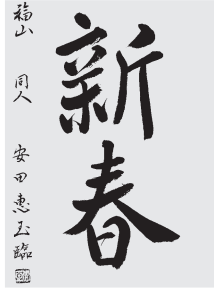 新春
福山 同人 安田惠玉臨